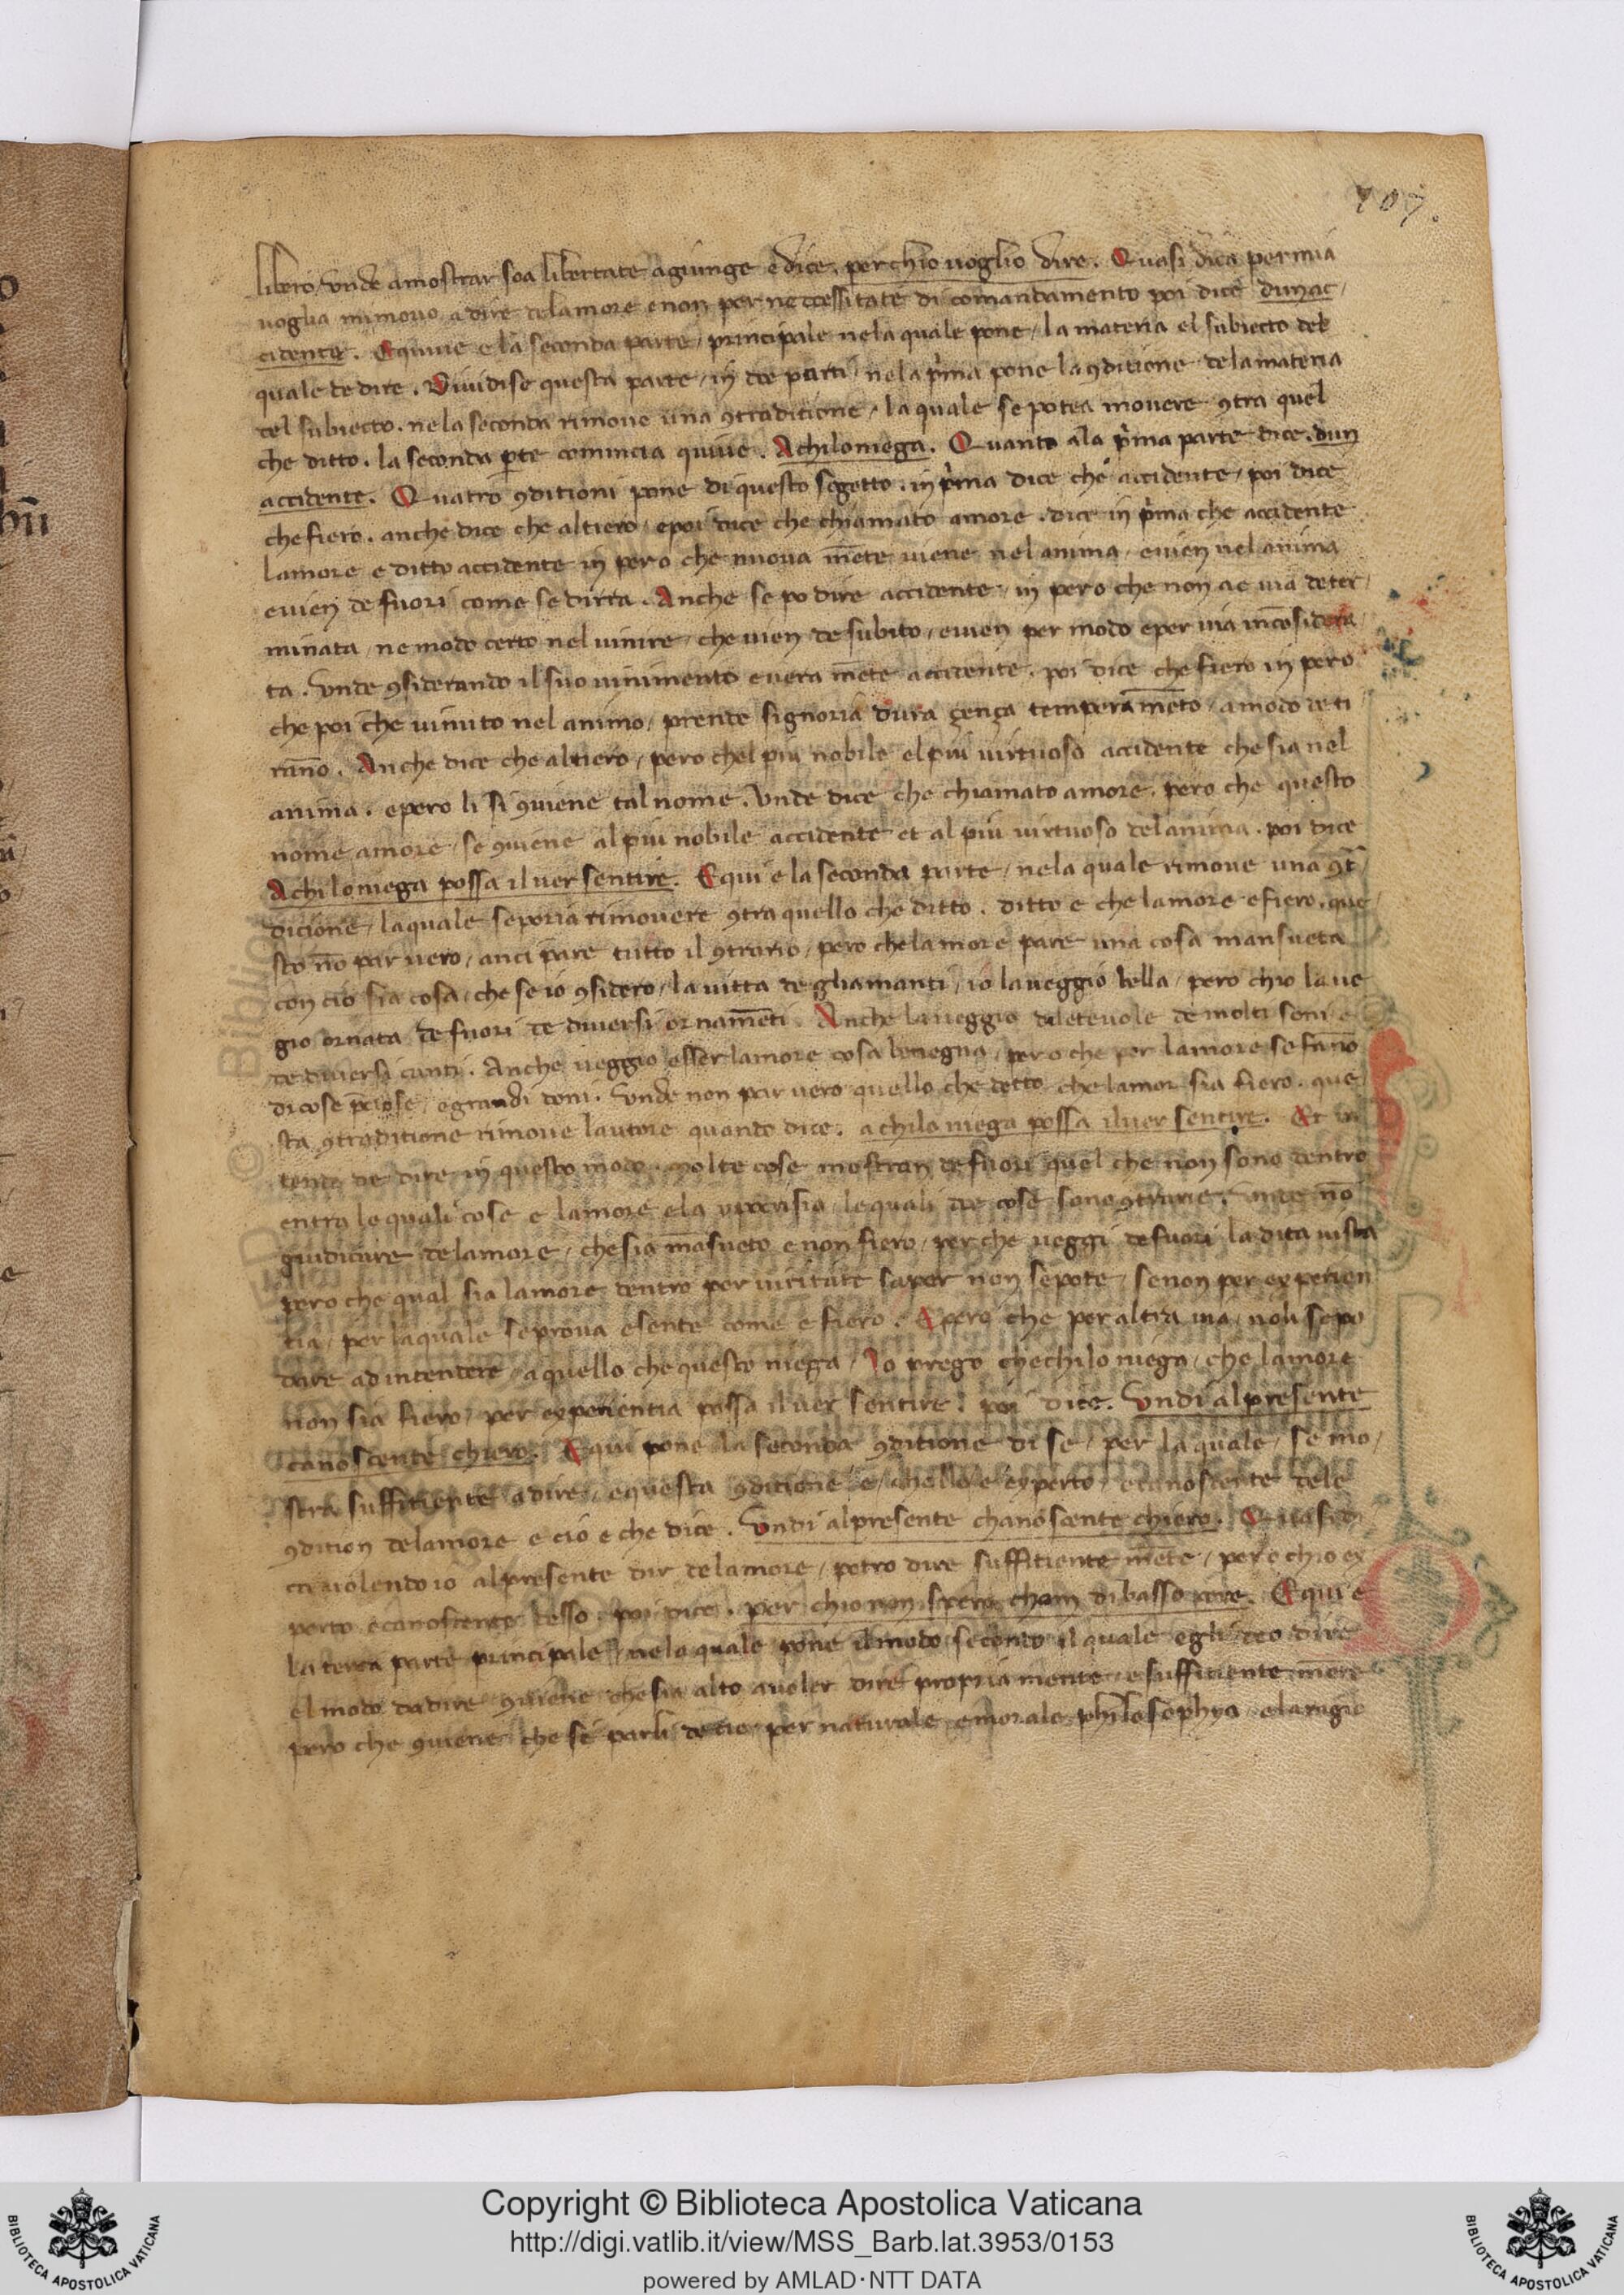 107.
libero. vnde amostrar soa libertate agiunge e dice. perchio uoglio dire. Quasi dica per mia
uoglia mi mouo a dire delamore e non per neccessitate di comandamento poi dice dunac
cidente. Equiue e la seconda parte principale nela quale pone la materia el subiecto del
quale de dire. Diuidise questa parte in doe parti nela p̄ma pone la ꝯditione dela materia
del subiecto. nela seconda rimoue una ꝯtraditione la quale se potea mouere ꝯtra quel
che ditto. la seconda ꝑte comincia quiue. Achiloniega. Quanto ala p̄ma parte dice. dun
accidente. Quatro ꝯditioni pone di questo sogetto. in p̄ma dice che accidente poi dice
che fiero. anche dice che altiero e poi dice che chiamato amore. dice in p̄ma che accidente
lamore e ditto accidente in pero che nuoua mēte uiene nel anima e uien nel anima
e uien de fuori come se dirra. Anche se po dire accidente in pero che non ae uia deter
minata ne modo certo nel uinire che uien de subito e uien per modo e per uia incōsidera
ta. Vnde ꝯsiderando il suo uinimento e uera mēte accidente. poi dice che fiero in pero
che poi che uinuto nel animo prende signoria dura çença temperamēto a modo de ti
rāno. Anche dice che altiero pero chel piu nobile el piu uirtuoso accidente che sia nel
anima. e pero li si ꝯuiene tal nome. Vnde dice che chiamato amore. pero che questo
nome amore se ꝯuiene al piu nobile accidente et al piu uirtuoso del anima. poi dice
Achiloniega possa il uer sentire. Equi e la seconda parte nela quale rimoue una ꝯt̄
dicione laquale se poria rimouere ꝯtra quello che ditto. ditto e che lamore e fiero. que
sto nō par uero anci pare tutto il ꝯtrario pero che lamore pare una cosa mansueta
con cio sia cosa che se io ꝯsidero la uitta de gliamanti io la ueggio bella pero chio la ue
gio ornata de fuori de diuersi ornamēti. Anche la ueggio diletevole de molti soni e
de diuersi canti. Anche ueggio esser lamore cosa benegna pero che per lamore se fāno
di cose p̄ciose e grandi doni. Vnde non par uero quello che detto che lamor sia fiero. que
sta ꝯtraditione rimoue lautore quando dice. achilo niega possa il uer sentire. Et in
tende de dire in questo modo. molte cose mostran de fuori quel che non sono dentro
entra le quali cose e lamore e la ypocrisia le quali doe cose sono ꝯtrarie. nō
giudicare delamore che sia māsueto e non fiero per che ueggi de fuori la dita uista
pero che qual sia lamore dentro per uiritate saper non se pote se non per experien
tia per laquale se proua e sente come e fiero. E pero che per altra uia non se po
dare ad intendere a quello che questo niega Io prego che chi lo niega che lamore
non sia fiero per experientia possa il uer sentire. poi dice. Vndi al presente
canoscente chiero. E qui pone la seconda ꝯditione di se per la quale se mo
stra suffitiente a dire e questa ꝯditione e chello e experto e canoscente dele
ꝯdition delamore e cio e che dice. Vndi alpresente chanoscente chiero. Quasi di
ca uolendo io alpresente dir delamore petro dire suffitiente mēte pero chio ex
perto e canoscente desso. poi dice. per chio non spero cham di basso core. Equi e
la terça parte principale nela quale pone il modo secondo il quale egli deo dire
el modo da dire ꝯuiene che sia alto a uoler dire propria mente e suffitiente mēte
pero che ꝯuiene che se parli de cio per naturale e morale philosophya e la ragiōe
Copyright © Biblioteca Apostolica Vaticana
http://digi.vatlib.it/view/MSS_Barb.lat.3953/0153
powered by AMLAD·NTT DATA
BIBLIOTECA APOSTOLICA VATICANA
BIBLIOTECA APOSTOLICA VATICANA